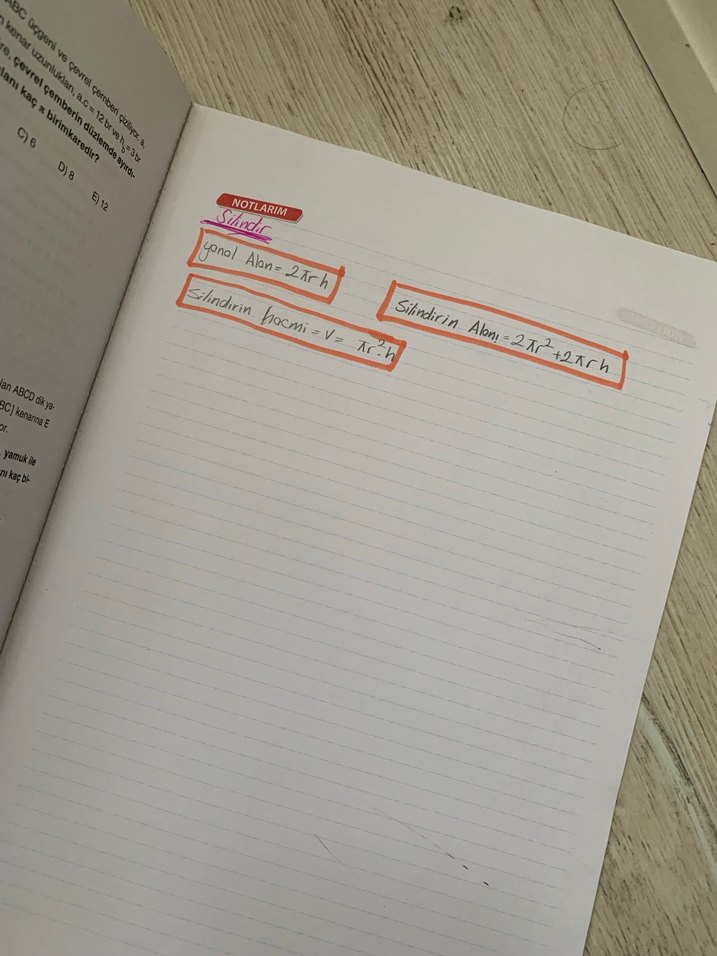 ABC üçgeni ve çevrel çemberi çiziliyor. a,
kenar uzunlukları, a.c = 12 br ve h_b = 3 br
çevrel çemberin düzlemde ayırdı-
alanı kaç π birimkaredir?
C) 6
D) 8
E) 12
lan ABCD dik ya-
BC] kenarına E
or.
yamuk ile
nı kaç bi-
NOTLARIM
Silindir
yanal Alan = 2πrh
Silindirin hacmi = V = πr².h
Silindirin Alanı = 2πr² + 2πrh